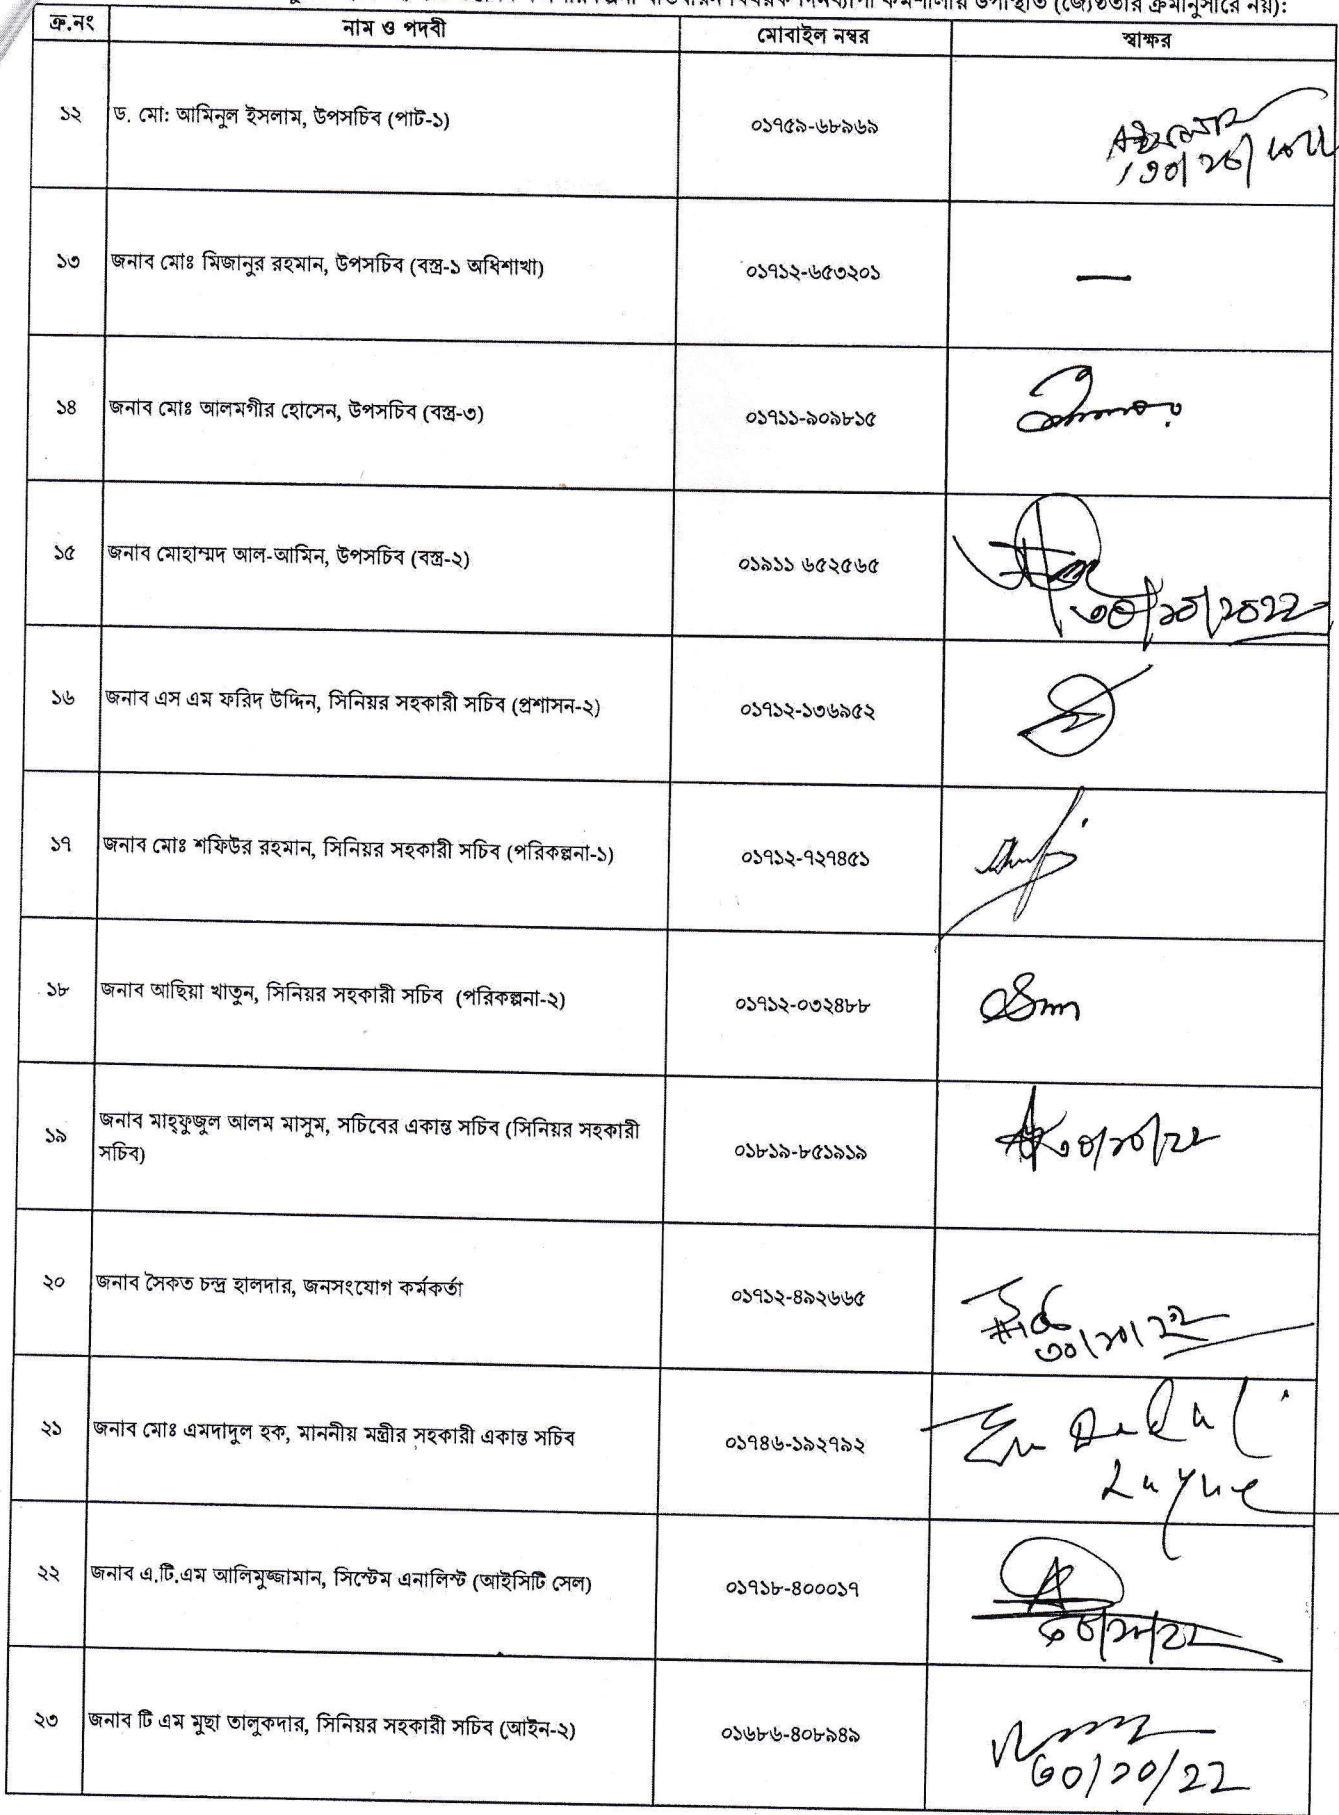 বিষয়ক দিনব্যাপী কর্মশালায় উপস্থিতি (জ্যেষ্ঠতার ক্রমানুসারে নয়):
ক্র.নং নাম ও পদবী মোবাইল নম্বর স্বাক্ষর
১২ ড. মো: আমিনুল ইসলাম, উপসচিব (পাট-১) ০১৭৫৯-৬৮৯৬৯
১৩ জনাব মোঃ মিজানুর রহমান, উপসচিব (বস্ত্র-১ অধিশাখা) ০১৭১২-৬৫৩২০১ —
১৪ জনাব মোঃ আলমগীর হোসেন, উপসচিব (বস্ত্র-৩) ০১৭১১-৯০৯৮১৫
১৫ জনাব মোহাম্মদ আল-আমিন, উপসচিব (বস্ত্র-২) ০১৯১১ ৬৫২৫৬৫
৩০/১০/২০২২
১৬ জনাব এস এম ফরিদ উদ্দিন, সিনিয়র সহকারী সচিব (প্রশাসন-২) ০১৭১২-১৩৬৯৫২
১৭ জনাব মোঃ শফিউর রহমান, সিনিয়র সহকারী সচিব (পরিকল্পনা-১) ০১৭১২-৭২৭৪৫১
১৮ জনাব আছিয়া খাতুন, সিনিয়র সহকারী সচিব (পরিকল্পনা-২) ০১৭১২-০৩২৪৮৮
১৯ জনাব মাহ্‌ফুজুল আলম মাসুম, সচিবের একান্ত সচিব (সিনিয়র সহকারী
সচিব) ০১৮১৯-৮৫১৯১৯ ৩০/১০/২২
২০ জনাব সৈকত চন্দ্র হালদার, জনসংযোগ কর্মকর্তা ০১৭১২-৪৯২৬৬৫
৩০/১০/২২
২১ জনাব মোঃ এমদাদুল হক, মাননীয় মন্ত্রীর সহকারী একান্ত সচিব ০১৭৪৬-১৯২৭৯২
২২ জনাব এ.টি.এম আলিমুজ্জামান, সিস্টেম এনালিস্ট (আইসিটি সেল) ০১৭১৮-৪০০০১৭
৩০/১০/২২
২৩ জনাব টি এম মুছা তালুকদার, সিনিয়র সহকারী সচিব (আইন-২) ০১৬৮৬-৪০৮৯৪৯
৩০/১০/২২